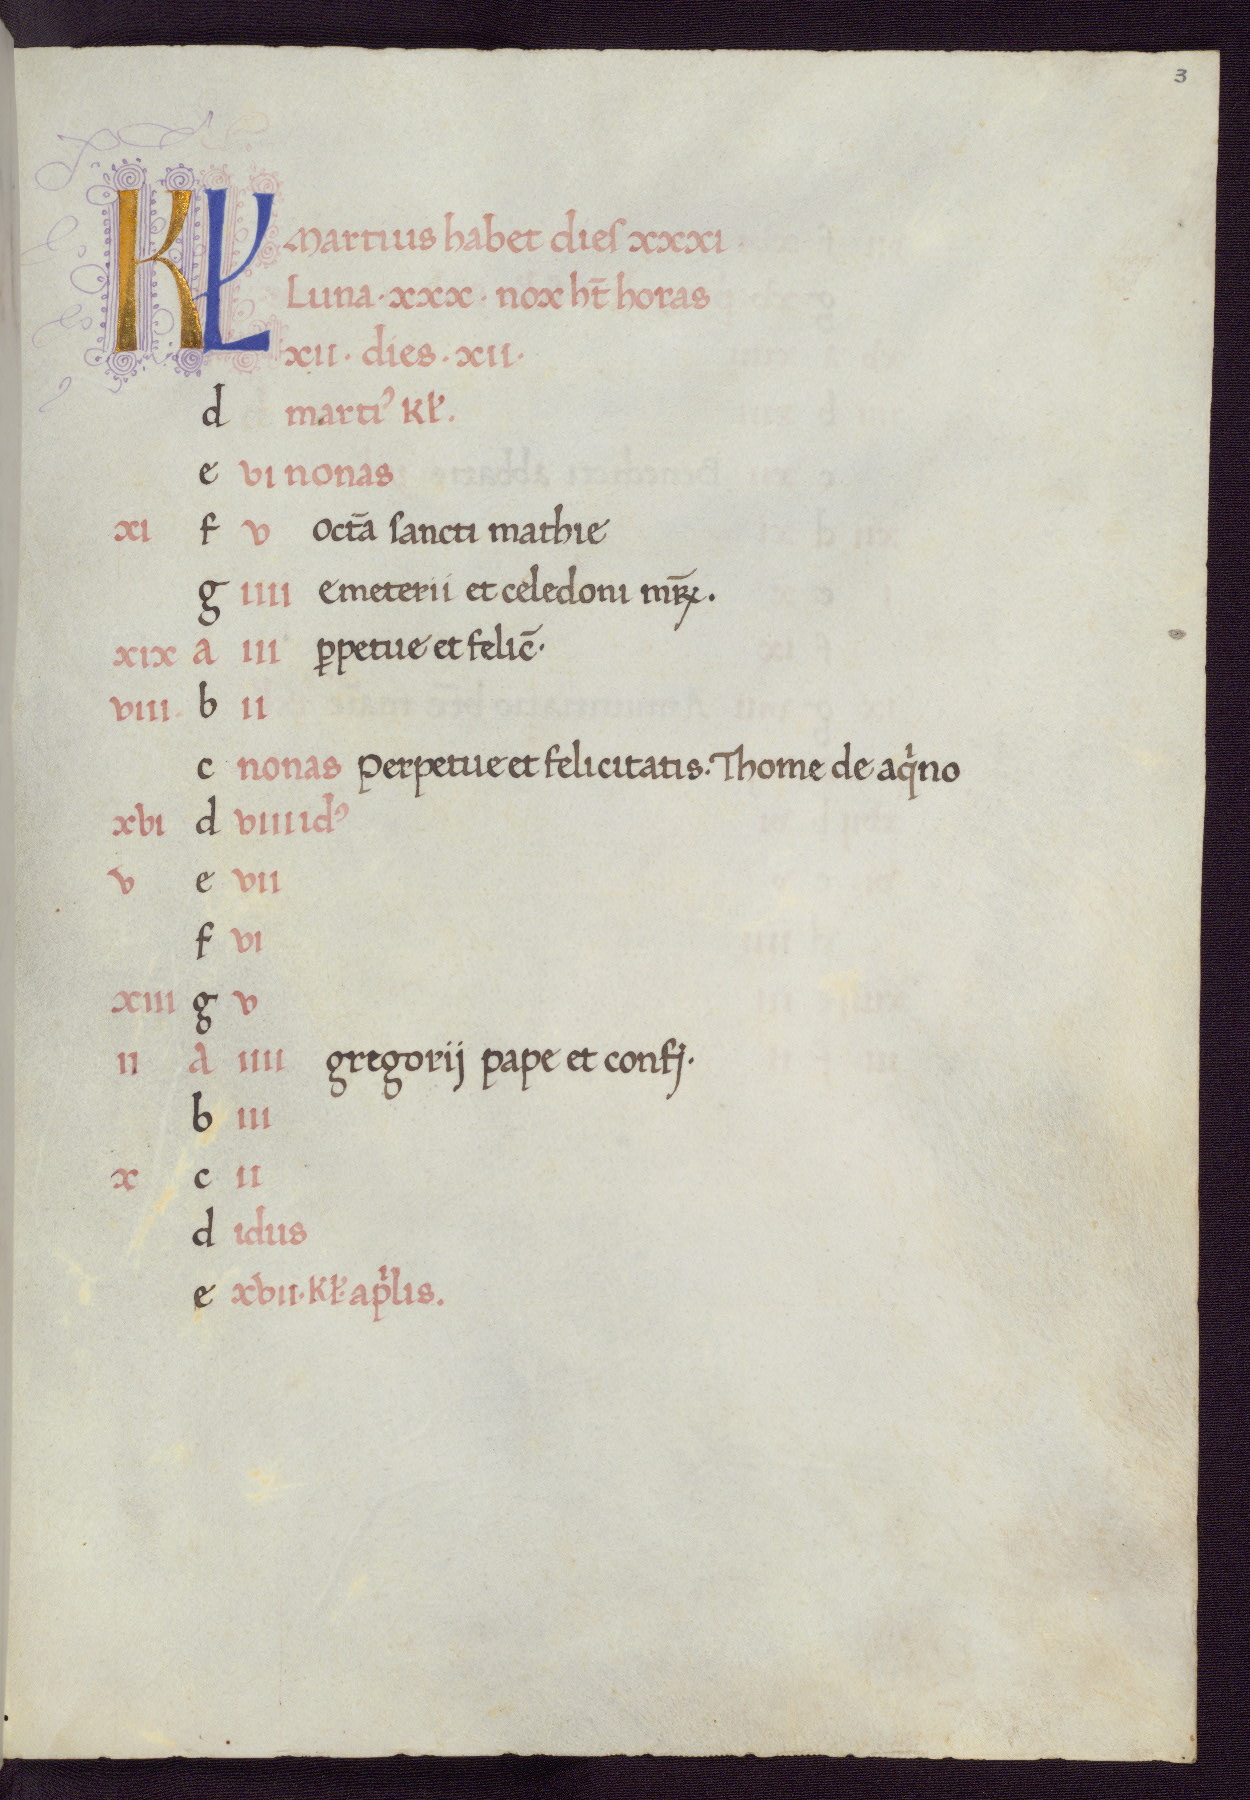 3
KL Martius habet dieſ xxxi
Luna · xxx · nox ht̄ horas
xii · dies · xii ·
d marti⁹ kł.
e vi nonas
xi f v Octā ſancti mathie
g iiii emeterii et celedoni mr̄ꝝ.
xix a iii ꝑpetue et felic̄ ·
viii b ii
c nonas Perpetue et felicitatis · Thome de aqⁱno
xvi d viiii id⁹
v e vii
f vi
xiii g v
ii A iiii gregorij pape et confj ·
b iii
x c ii
d idus
e xvii · kł · apⁱlis.